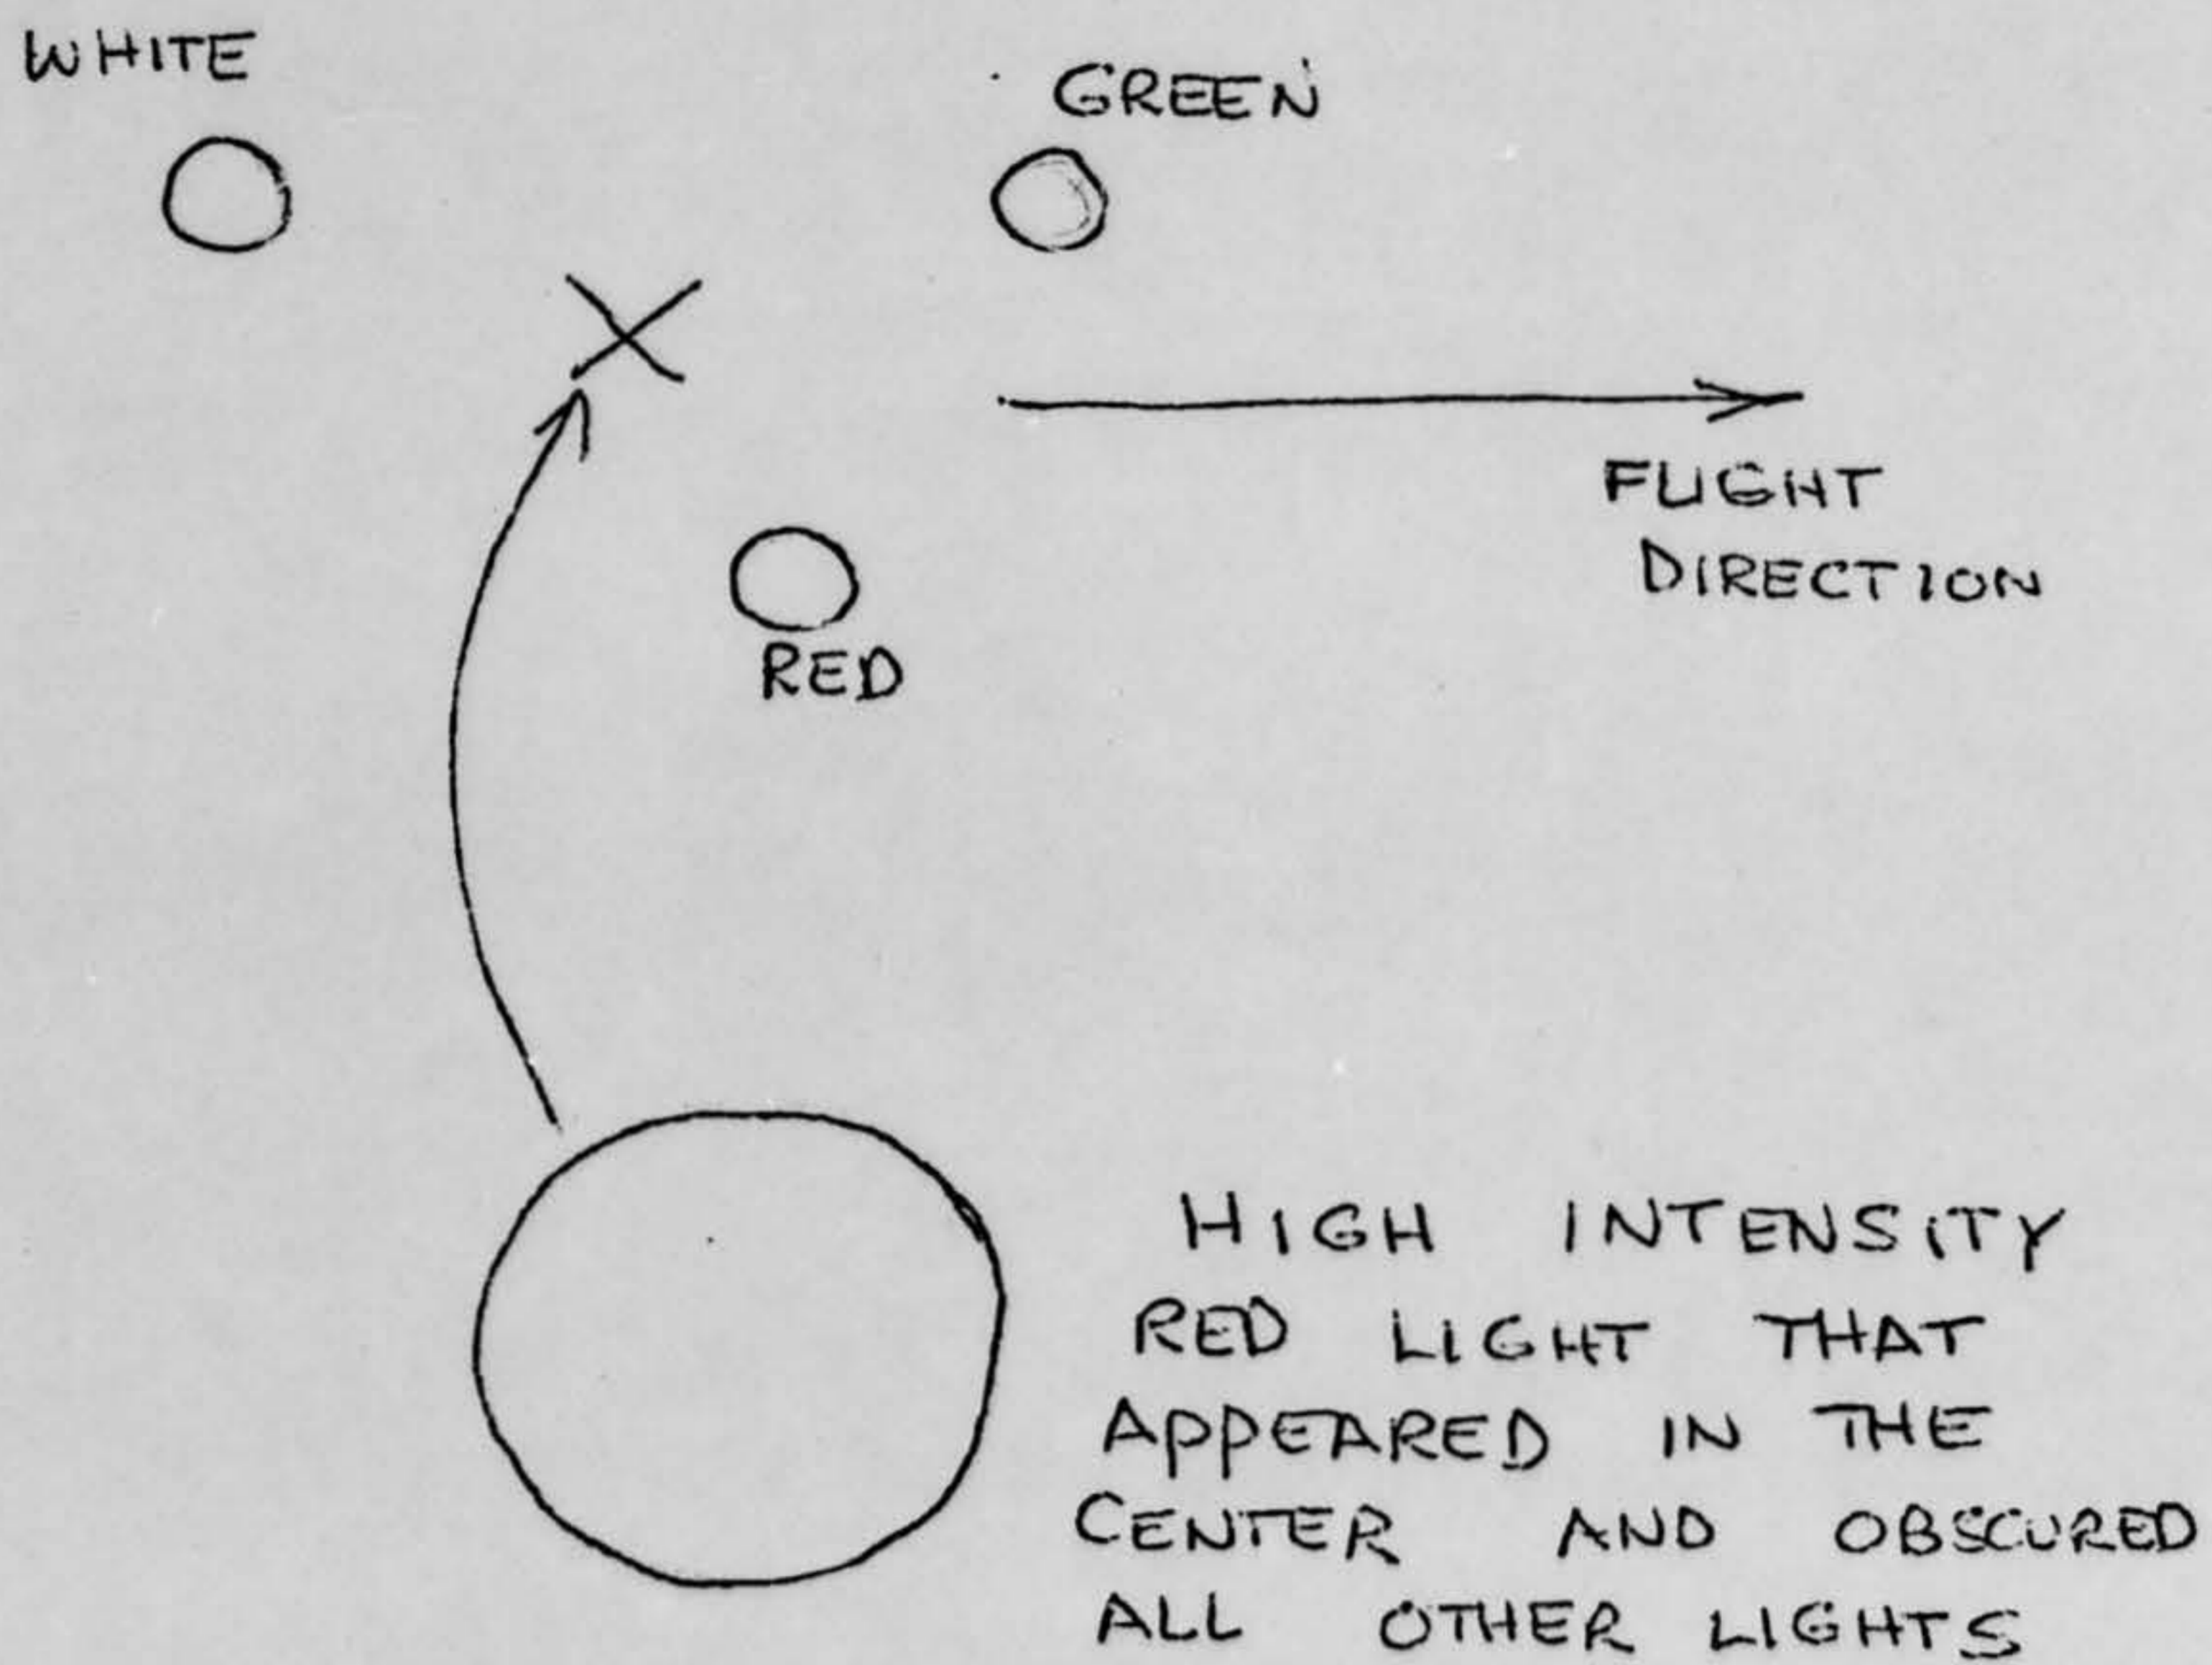 WHITE
GREEN
FLIGHT
DIRECTION
RED
HIGH INTENSITY
RED LIGHT THAT
APPEARED IN THE
CENTER AND OBSCURED
ALL OTHER LIGHTS